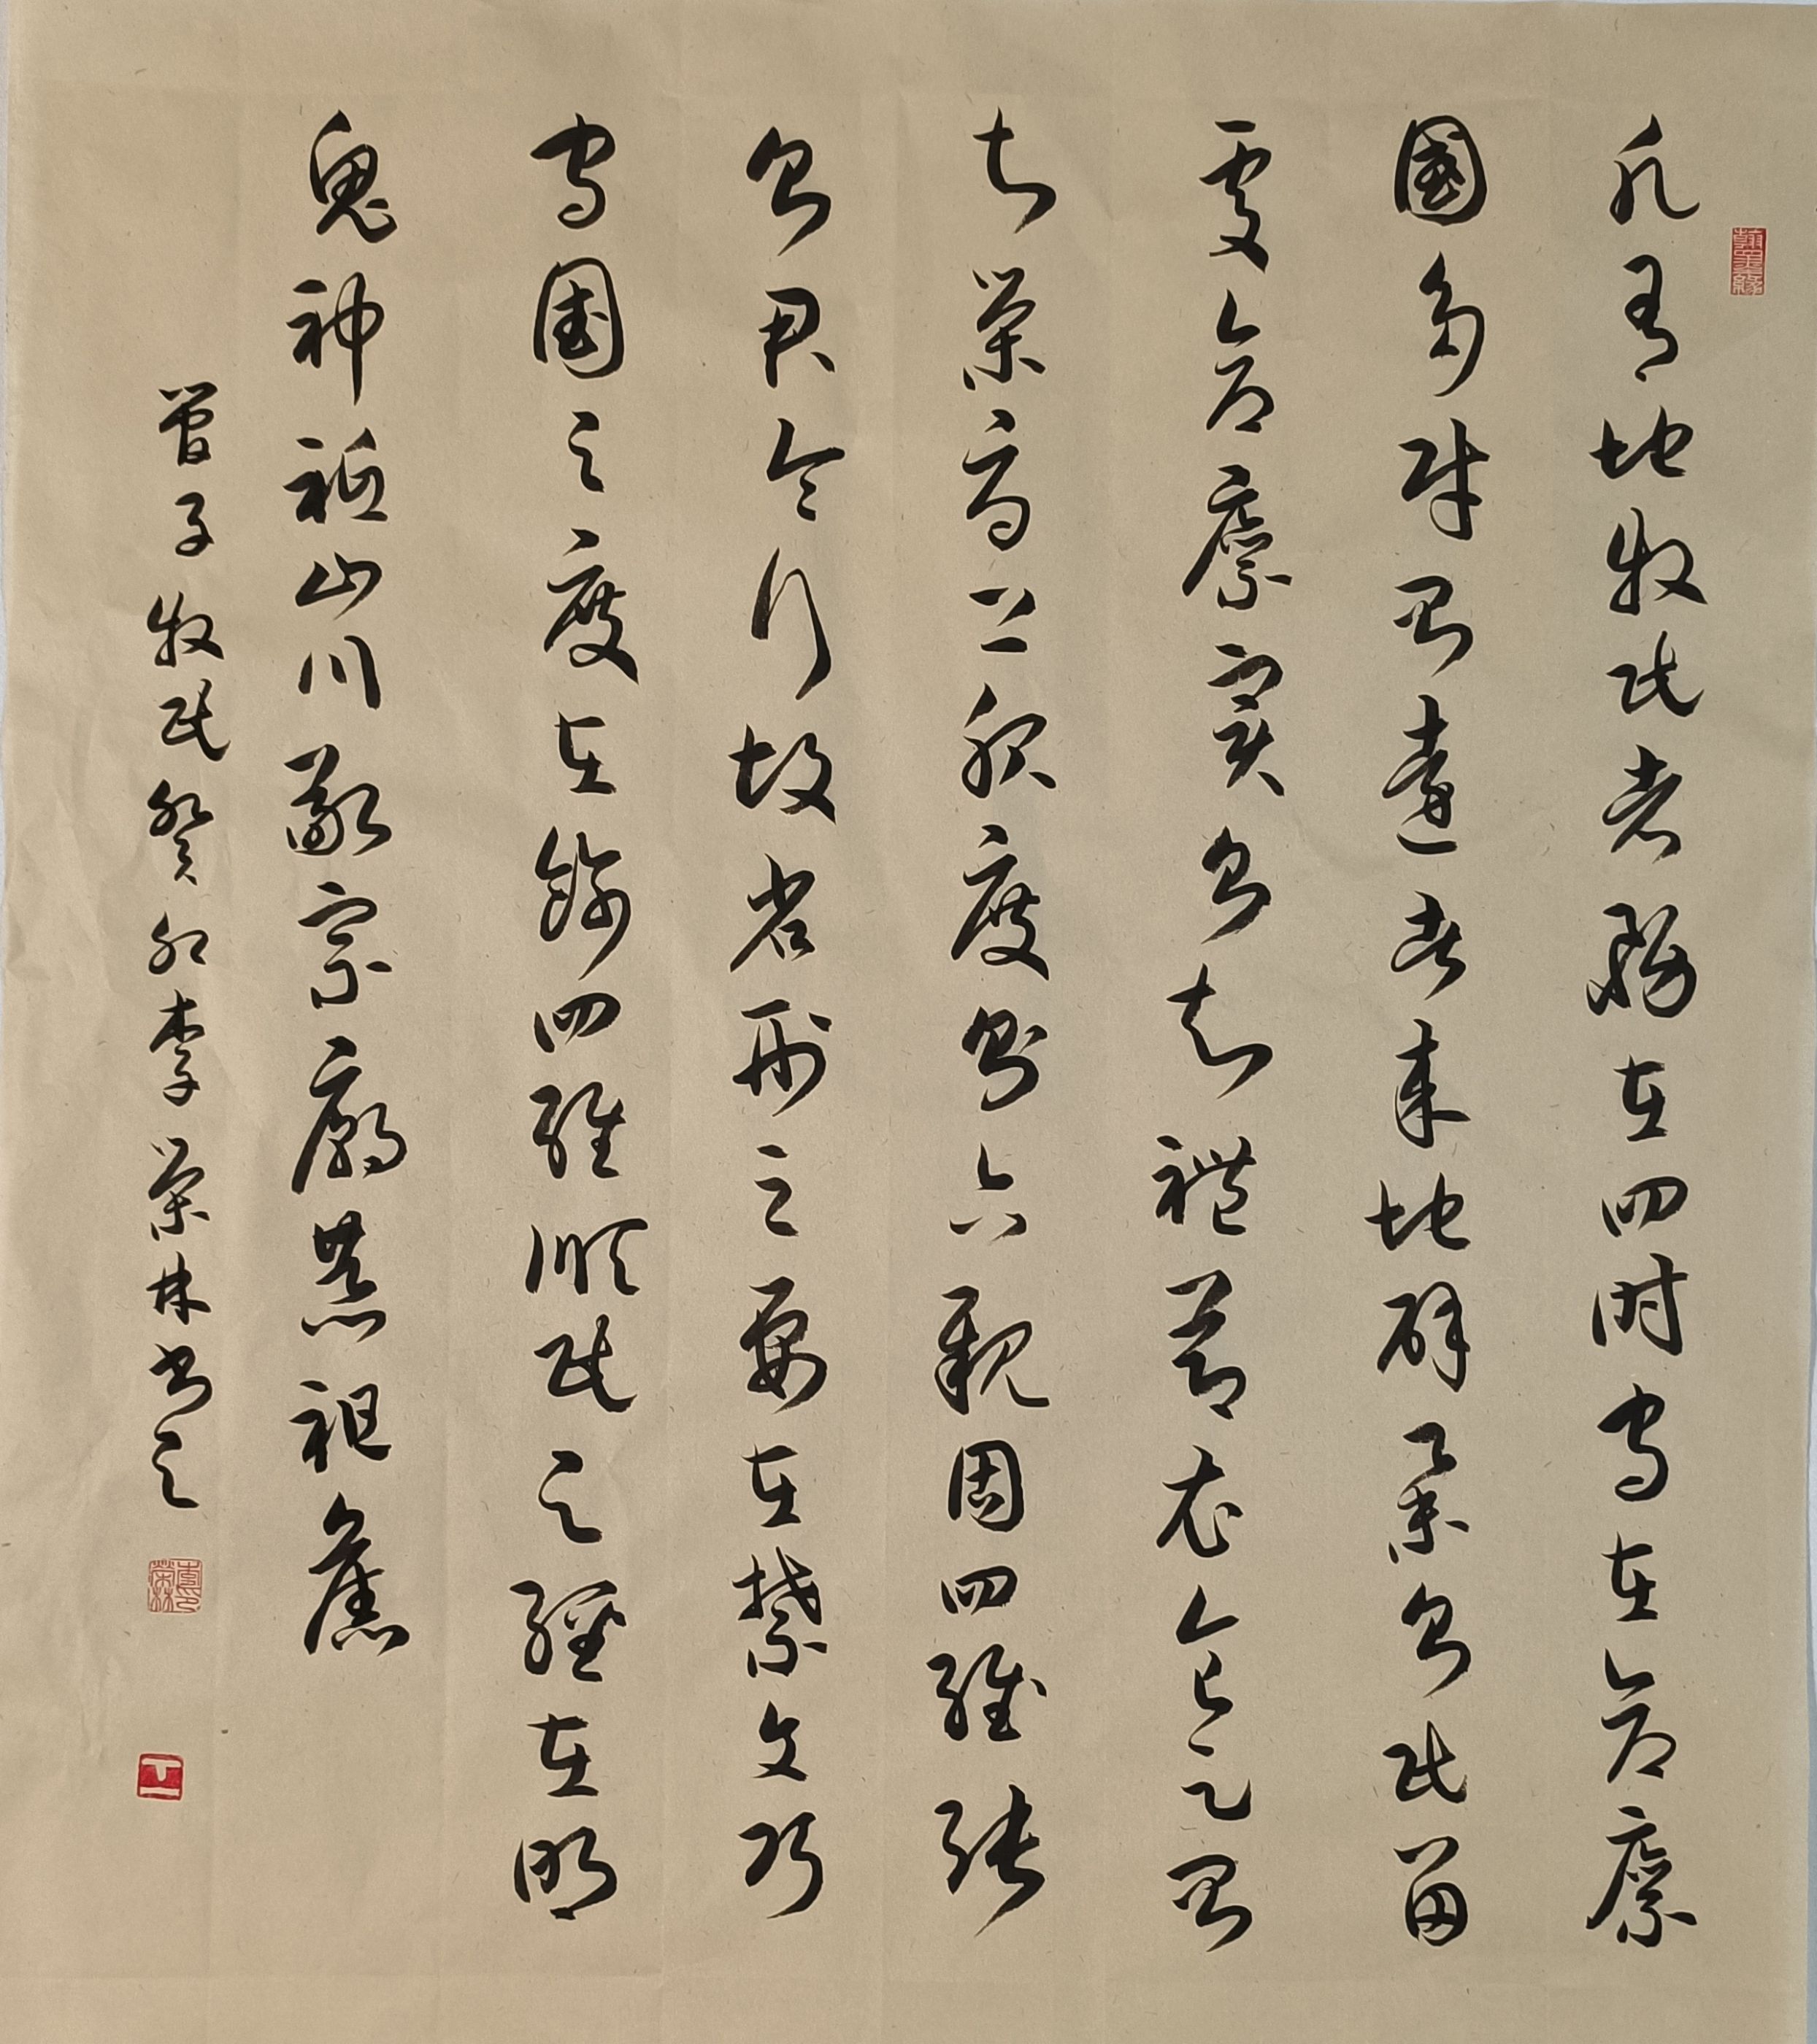 凡有地牧民者務在四時守在倉廩
國多財則遠者來地辟舉則民留
處倉廩實則知禮節衣食足則
知榮辱上服度則六親固四維張
則君令行故省刑之要在禁文巧
守國之度在飾四維順民之經在明
鬼神祗山川敬宗廟恭祖舊
管子牧民癸卯李榮林書之
翰墨緣